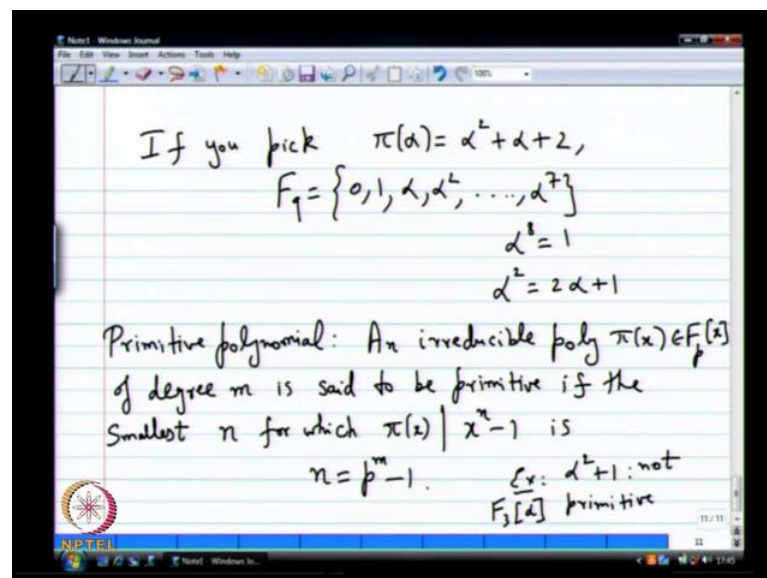 Note1 - Windows Journal
File Edit View Insert Actions Tools Help
100%
If you pick π(α) = α² + α + 2,
F₉ = {0, 1, α, α², ...., α⁷}
α⁸ = 1
α² = 2α + 1
Primitive polynomial: An irreducible poly π(x) ∈ Fₚ[x]
of degree m is said to be primitive if the
smallest n for which π(x) | xⁿ - 1 is
n = pᵐ - 1.
Ex: α² + 1 : not
F₃[α] primitive
11 / 11
11
NPTEL
Note1 - Windows Jo...
17:45